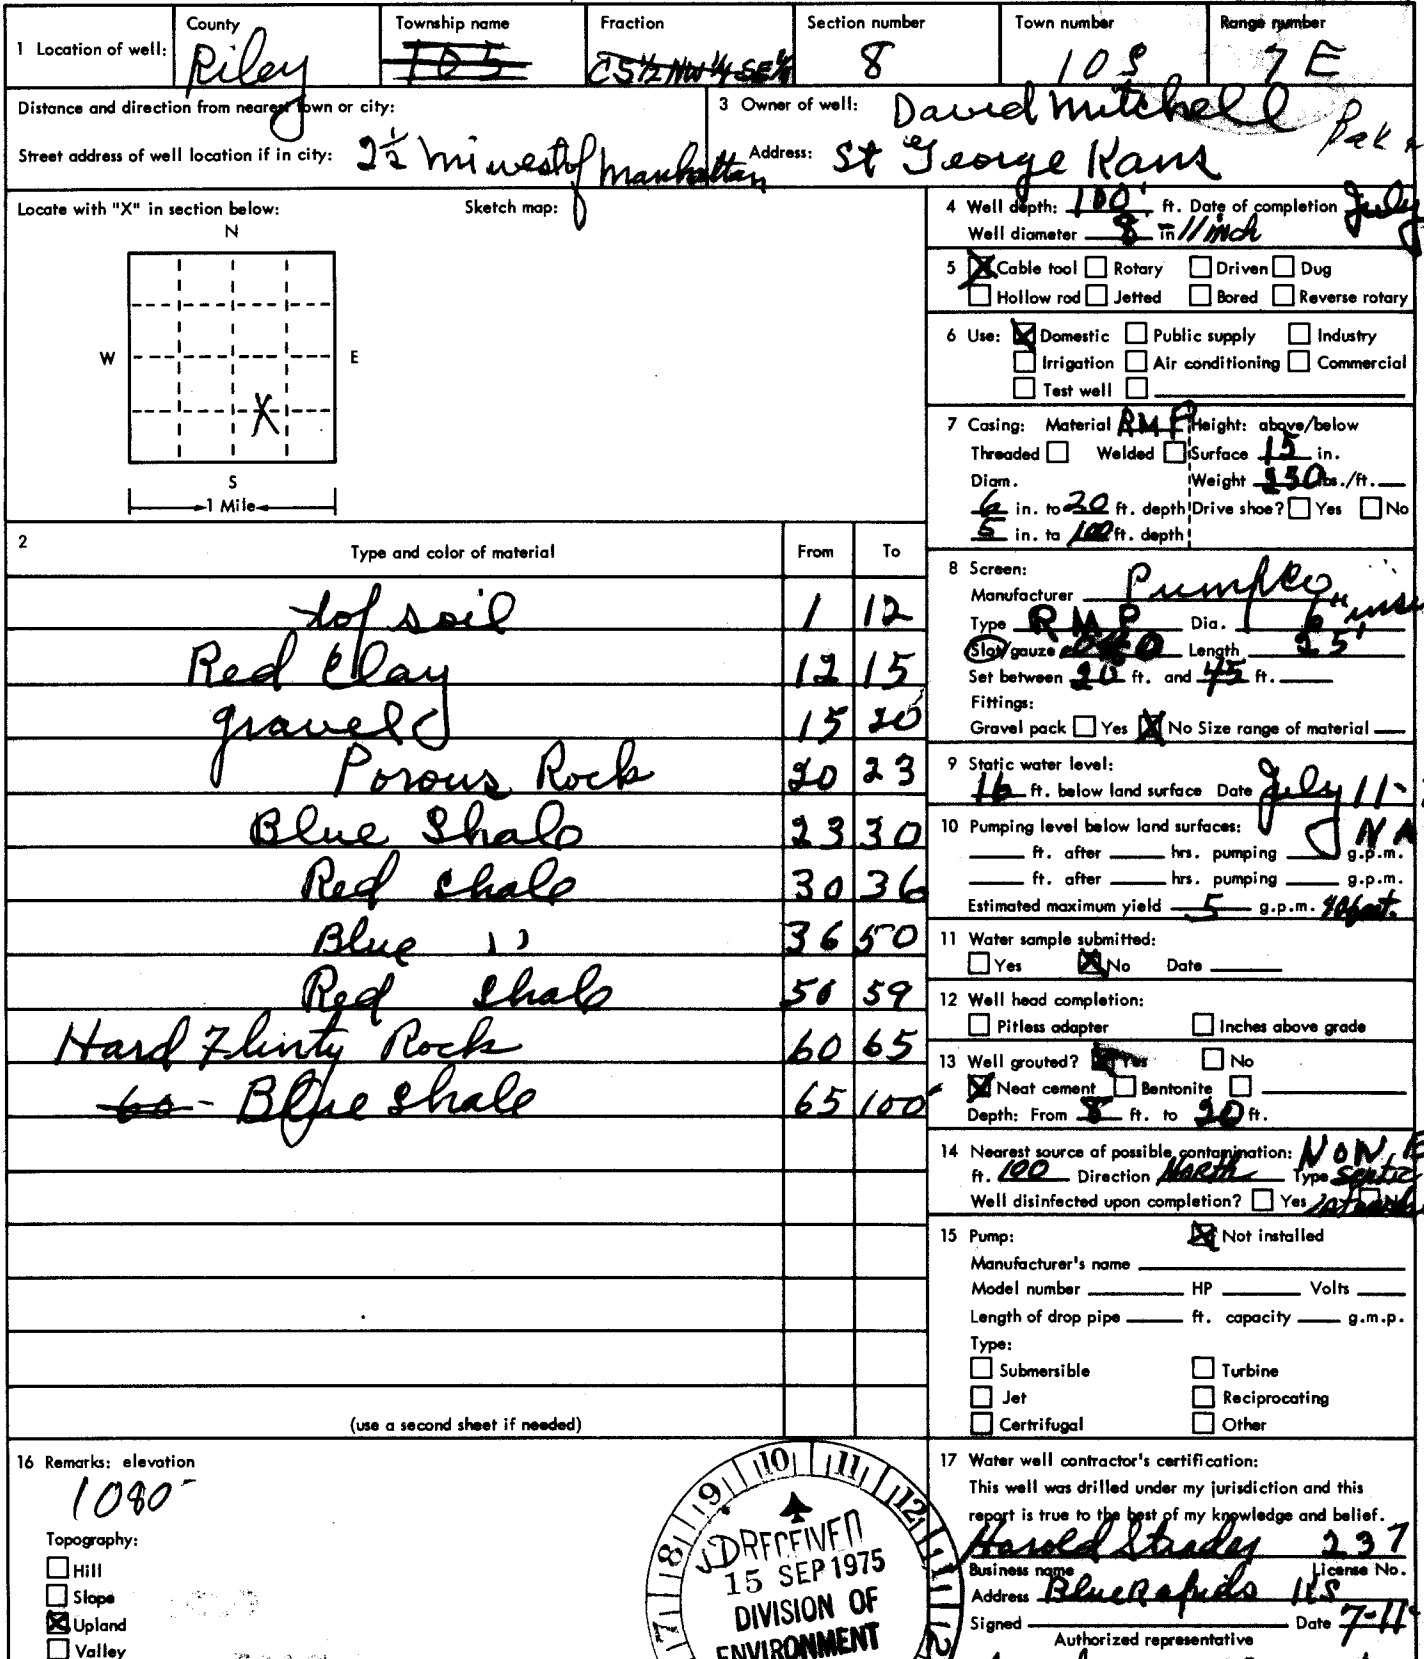 1 Location of well: County Riley Township name 105 Fraction C S½ NW ¼ SE ¼ Section number 8 Town number 10S Range number 7E
Distance and direction from nearest town or city: 3 Owner of well: David Mitchell
Street address of well location if in city: 2½ mi west of Manhattan Address: St George Kans
Locate with "X" in section below: Sketch map:
N
W E
X
S
1 Mile
4 Well depth: 100' ft. Date of completion July
Well diameter 8 in 11 inch
5 X Cable tool Rotary Driven Dug
Hollow rod Jetted Bored Reverse rotary
6 Use: X Domestic Public supply Industry
Irrigation Air conditioning Commercial
Test well
7 Casing: Material RMP Height: above/below
Threaded Welded Surface 15 in.
Diam. Weight lbs./ft.
6 in. to 20 ft. depth Drive shoe? Yes No
5 in. to 100 ft. depth
2 Type and color of material From To
top soil 1 12
Red Clay 12 15
gravel 15 20
Porous Rock 20 23
Blue Shale 23 30
Red Shale 30 36
Blue 11 36 50
Red Shale 50 59
Hard Flinty Rock 60 65
60 - Blue Shale 65 100
(use a second sheet if needed)
8 Screen:
Manufacturer Pump Co
Type RMP Dia. 6"
Slot/gauze Length 25'
Set between 20 ft. and 45 ft.
Fittings:
Gravel pack Yes X No Size range of material
9 Static water level:
16 ft. below land surface Date July 11-
10 Pumping level below land surfaces: NA
ft. after hrs. pumping g.p.m.
ft. after hrs. pumping g.p.m.
Estimated maximum yield 5 g.p.m.
11 Water sample submitted:
Yes X No Date
12 Well head completion:
Pitless adapter Inches above grade
13 Well grouted? Yes No
X Neat cement Bentonite
Depth: From 8 ft. to 20 ft.
14 Nearest source of possible contamination: NONE
ft. 100 Direction North Type Septic
Well disinfected upon completion? Yes No
15 Pump: X Not installed
Manufacturer's name
Model number HP Volts
Length of drop pipe ft. capacity g.m.p.
Type:
Submersible Turbine
Jet Reciprocating
Certrifugal Other
16 Remarks: elevation
1080
Topography:
Hill
Slope
X Upland
Valley
7 8 9 10 11 12 1 2
RECEIVED
15 SEP 1975
DIVISION OF
ENVIRONMENT
17 Water well contractor's certification:
This well was drilled under my jurisdiction and this
report is true to the best of my knowledge and belief.
Harold Strader 237
Business name License No.
Address Blue Rapids KS
Signed Date 7-11
Authorized representative